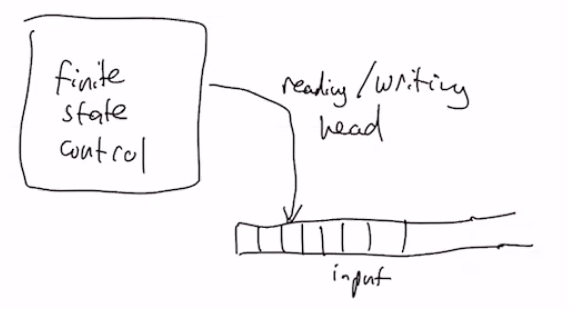 finite
state
control
reading/writing
head
input